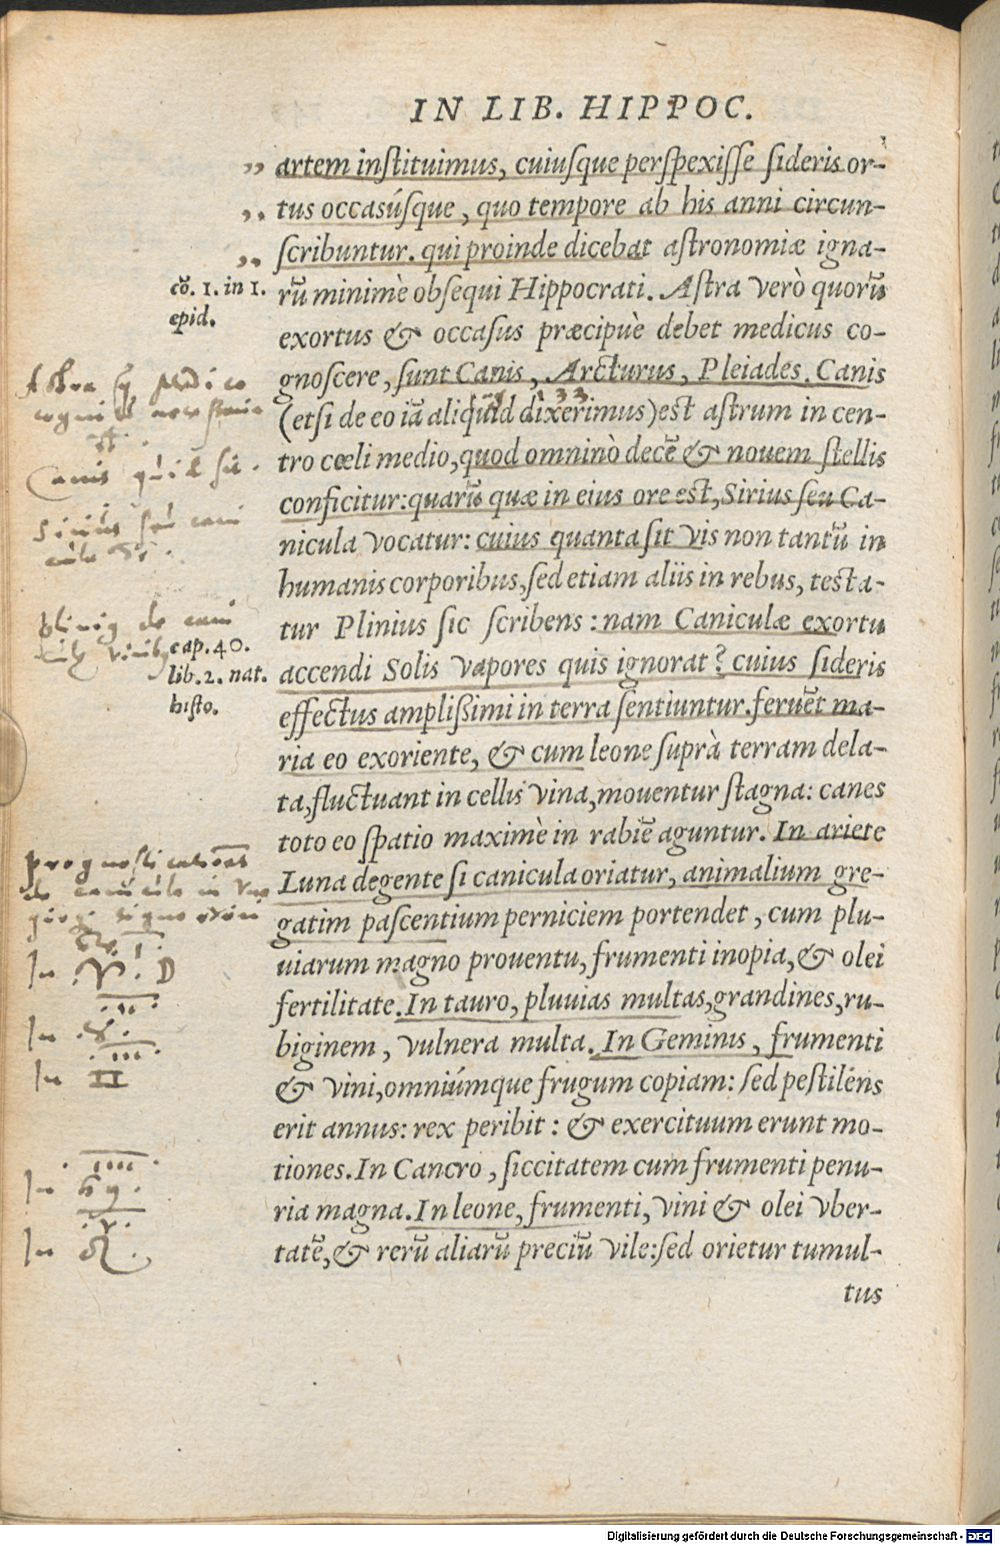 IN LIB. HIPPOC.
„ artem instituimus, cuiusque perspexisse sideris or-
„ tus occasúsque, quo tempore ab his anni circun-
„ scribuntur. qui proinde dicebat astronomiæ igna-
cõ. 1. in 1.
epid.
rũ minimè obsequi Hippocrati. Astra verò quorũ
exortus & occasus præcipuè debet medicus co-
gnoscere, sunt Canis, Arcturus, Pleiades. Canis
(etsi de eo iã aliquid dixerimus) est astrum in cen-
tro cœli medio, quod omninò decẽ & nouem stellis
conficitur: quarũ quæ in eius ore est, Sirius seu Ca-
nicula vocatur: cuius quanta sit vis non tantũ in
humanis corporibus, sed etiam aliis in rebus, testa-
tur Plinius sic scribens: nam Caniculæ exortu
cap. 40.
lib. 2. nat.
histo.
accendi Solis vapores quis ignorat? cuius sideris
effectus amplißimi in terra sentiuntur. feruẽt ma-
ria eo exoriente, & cum leone suprà terram dela-
ta, fluctuant in cellis vina, mouentur stagna: canes
toto eo spatio maximè in rabiẽ aguntur. In ariete
Luna degente si canicula oriatur, animalium gre-
gatim pascentium perniciem portendet, cum plu-
uiarum magno prouentu, frumenti inopia, & olei
fertilitate. In tauro, pluuias multas, grandines, ru-
biginem, vulnera multa. In Geminis, frumenti
& vini, omniúmque frugum copiam: sed pestilẽns
erit annus: rex peribit: & exercituum erunt mo-
tiones. In Cancro, siccitatem cum frumenti penu-
ria magna. In leone, frumenti, vini & olei vber-
tatẽ, & rerũ aliarũ preciũ vile: sed orietur tumul-
tus
Canis
In
In
In
In
In
Digitalisierung gefördert durch die Deutsche Forschungsgemeinschaft - DFG